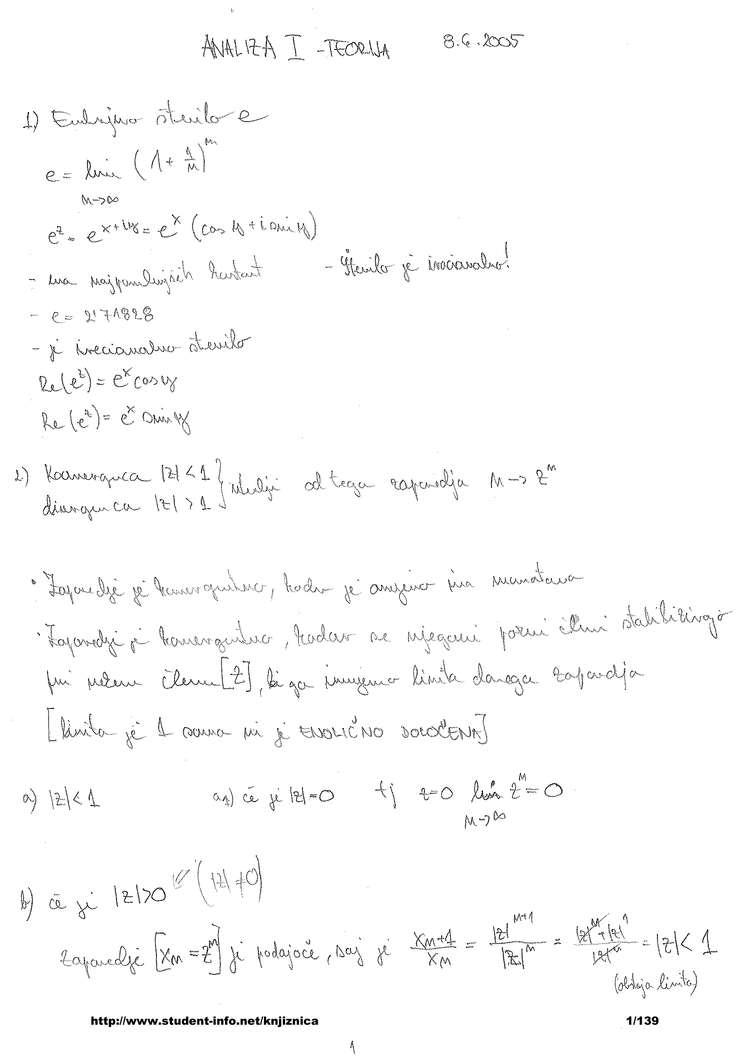 ANALIZA I - TEORIJA 8.6.2005
1) število e
e = lim (1 + 1/n)^n
n->∞
e^z = e^(x+iy) = e^x (cos y + i sin y)
- ena konstant - Število je iracionalno!
- e = 2'71828
- je iracionalno število
Re(e^z) = e^x cos y
Re(e^z) = e^x sin y
2) Konvergenca |z| < 1 } od tega zaporedja n -> z^n
divergenca |z| > 1
• Zaporedje je konvergentno, kadar je omejeno in monotono
• Zaporedje je konvergentno, kadar se njegovi členi stabilizirajo
pri nekem členu [z], ki ga imenujemo limita danega zaporedja
[limita je 1 sama in je ENOLIČNO DOLOČENA]
a) |z| < 1 a1) če je |z| = 0 tj z=0 lim z^n = 0
n->∞
b) če je |z|>0 (|z| ≠ 0)
Zaporedje [x_n = z^n] je padajoče, saj je x_n+1 / x_n = |z|^(n+1) / |z|^n = |z|^n * |z|^1 / |z|^n = |z| < 1
(obstaja limita)
http://www.student-info.net/knjiznica 1/139
1